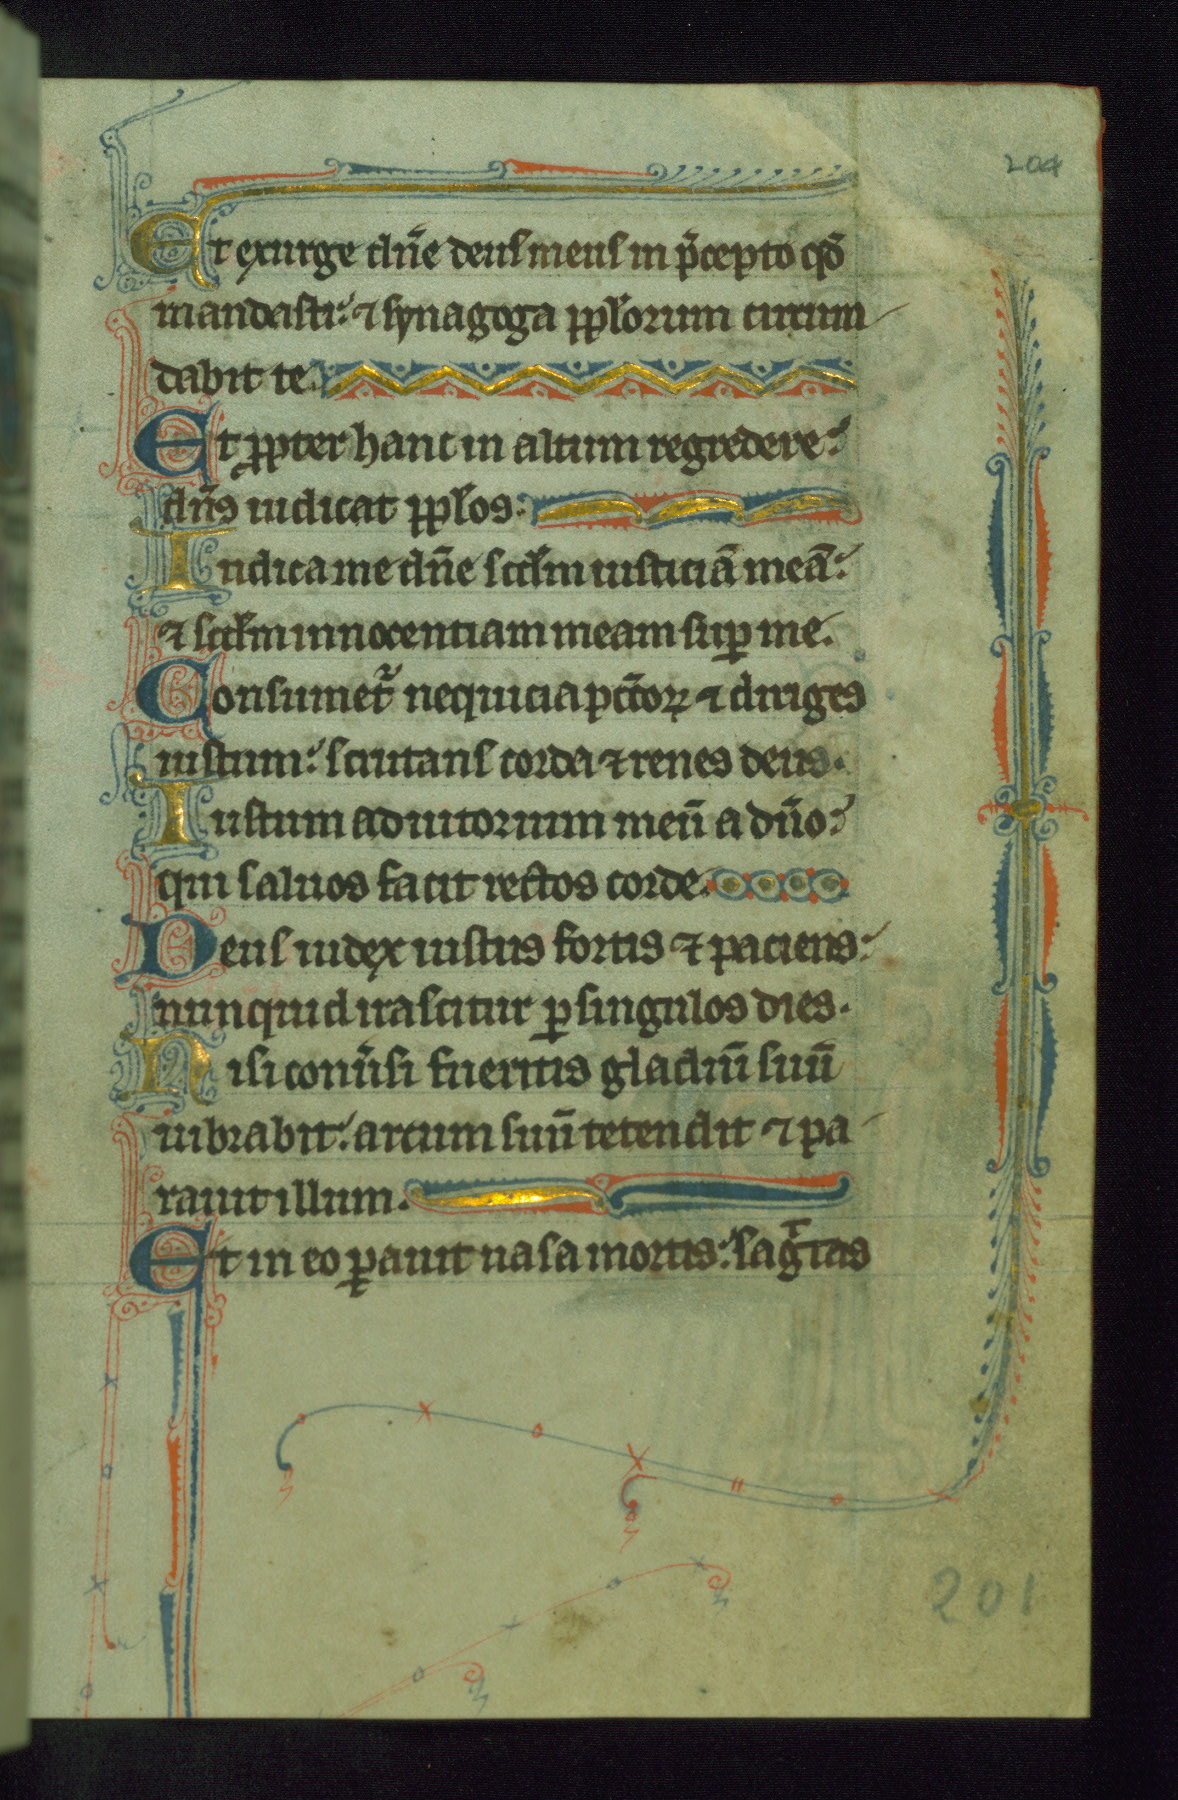 204
Et exurge dn̄e deus meus in p̄cepto qd̄
mandasti: ⁊ synagoga ppl̄orum circum
dabit te.
Et ꝓpter hanc in altum regredere:
dn̄s iudicat ppl̄os.
Iudica me dn̄e scd̄m iusticiā meā:
⁊ scd̄m innocentiam meam suꝑ me.
Consumet᷑ nequicia pcc̄toꝝ ⁊ diriges
iustum: scrutans corda ⁊ renes deus.
Iustum adiutorium meū a dn̄o:
qui saluos facit rectos corde.
Deus iudex iustus fortis ⁊ paciens:
nunquid irascitur ꝑ singulos dies.
Nisi conuˀsi fueritis gladiū suū
uibrabit: arcum suū tetendit ⁊ pa
rauit illum.
Et in eo ꝑauit uasa mortis: sagͥttas
201